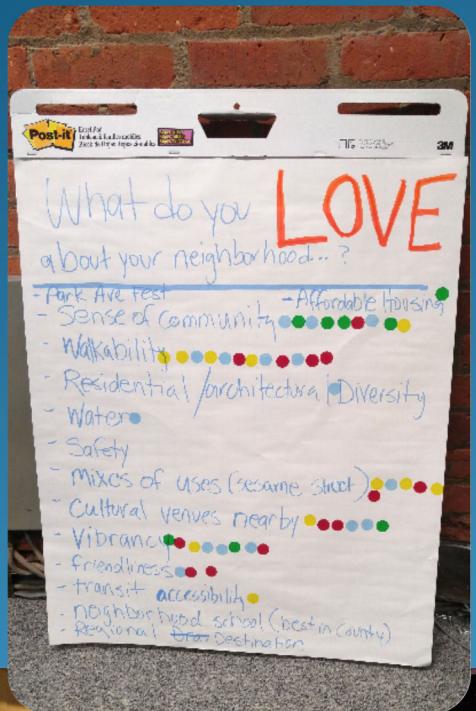 Post-it
3M
What do you LOVE
about your neighborhood..?
- Park Ave Fest
- Affordable Housing
- Sense of Community
- Walkability
- Residential /architectural Diversity
- Water
- Safety
- Mixes of uses (sesame struct)
- Cultural venues nearby
- Vibrancy
- friendliness
- transit accessibility
- neighborhood school (best in county)
- Regional Destination